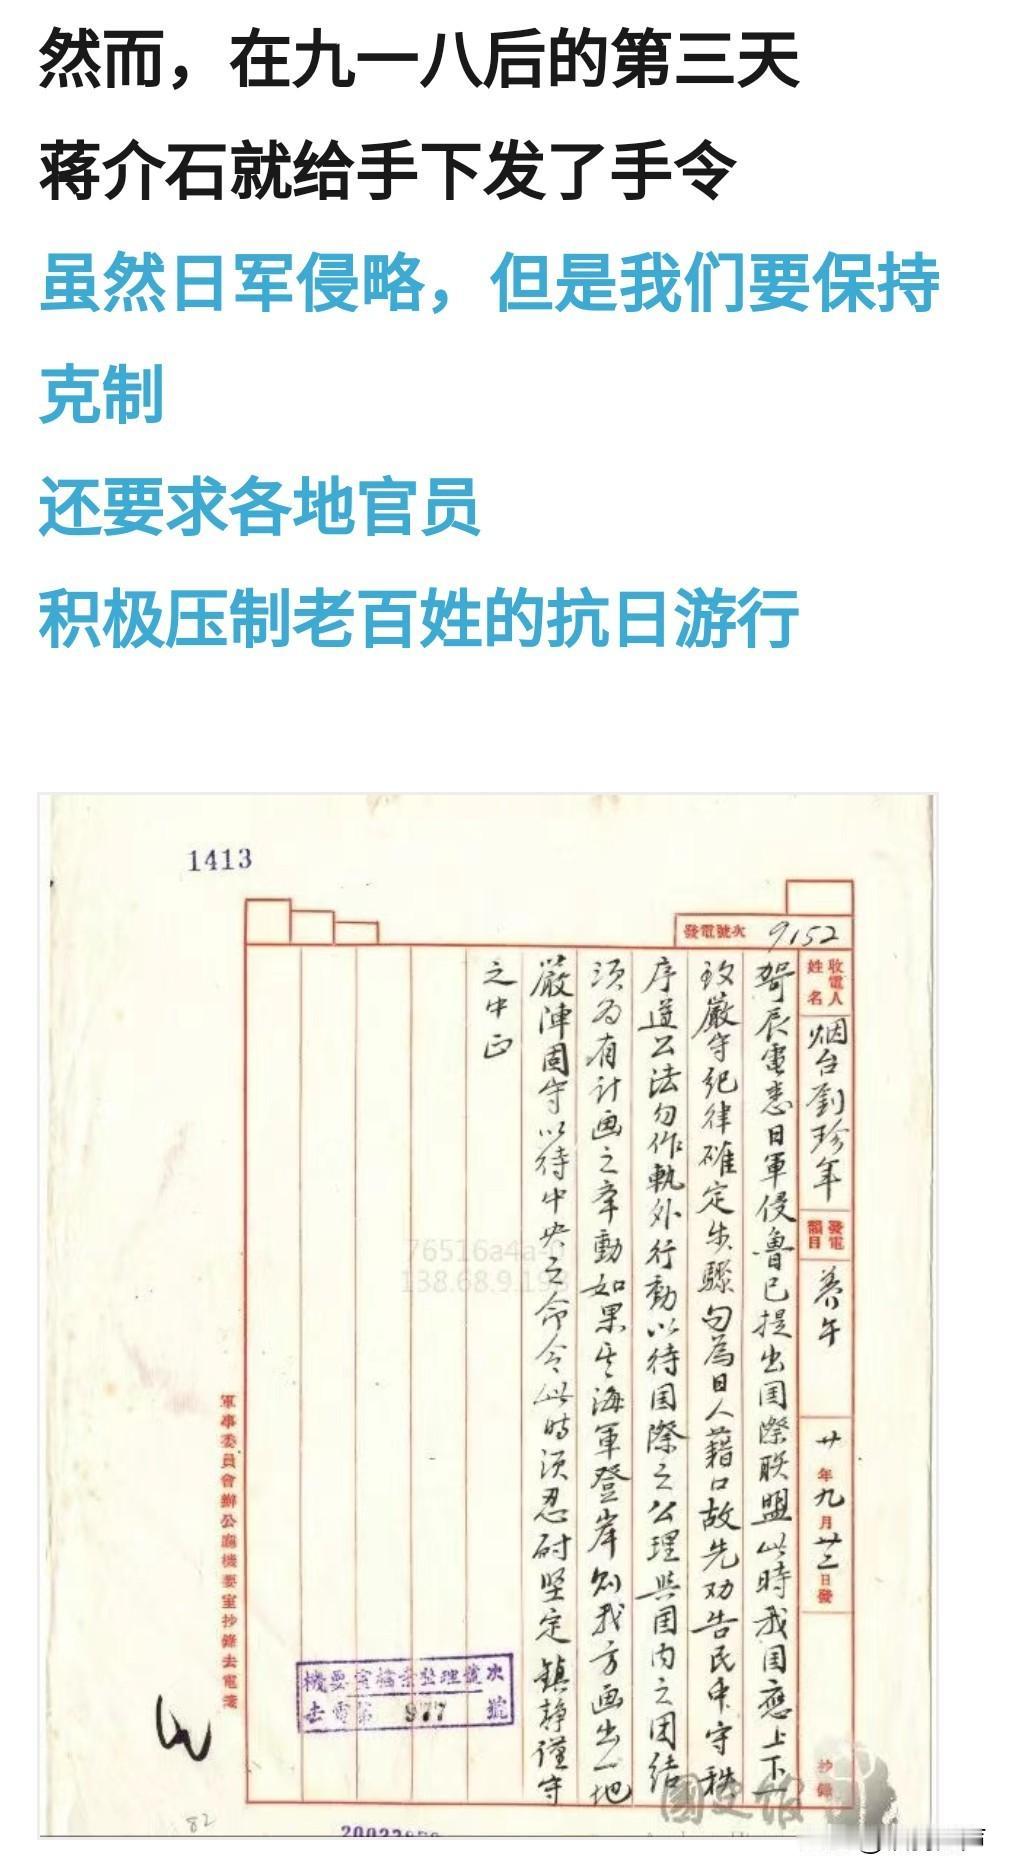 然而，在九一八后的第三天
蒋介石就给手下发了手令
虽然日军侵略，但是我们要保持
克制
还要求各地官员
积极压制老百姓的抗日游行
1413
發電號次 9152
收電人姓名 烟台劉珍年
發電韻目 養午
廿年九月廿二日發
抄錄
辰電悉日軍侵魯已提出国際联盟此時我国應上下一
致嚴守紀律確定步驟勿為日人藉口故先劝告民衆守秩
序遵公法勿作軌外行動以待国際之公理與国内之团结
须为有计画之牽動如果其海軍登岸则我方画出一地
嚴陣固守以待中央之命令此時须忍耐坚定鎮静谨守
之中正
軍事委員會辦公廳機要室抄錄去電箋
機要室檔案整理號次
去電第 977 號
76516a4a-0
138.68.9.19
國史館
82